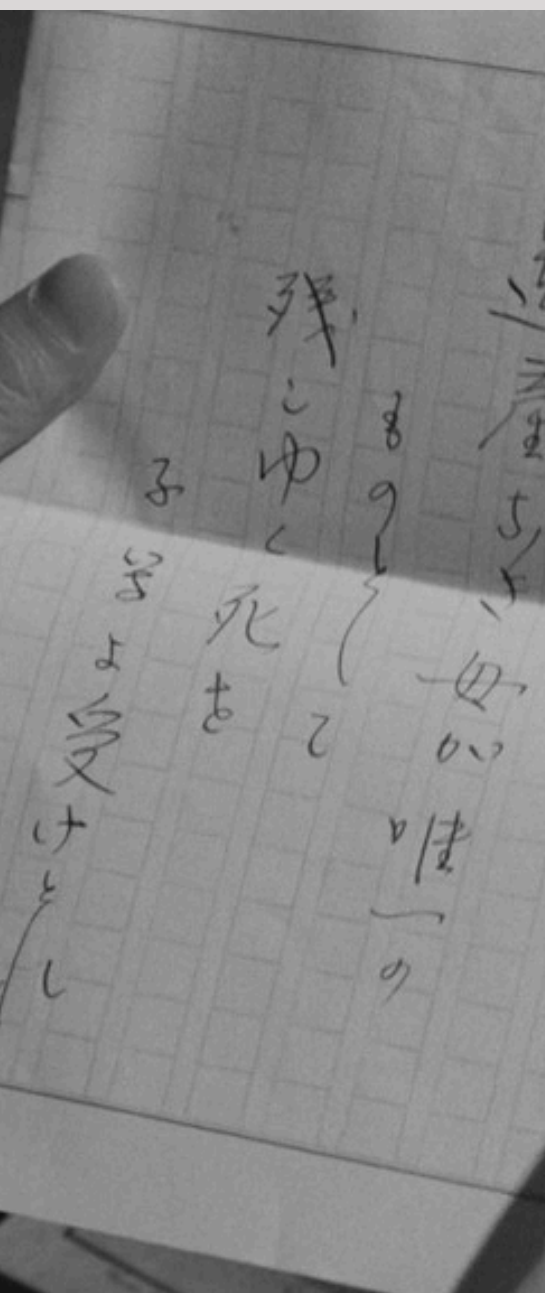 遺産なき母が唯一の
ものとして
残しゆく死を
子等よ受けとれ